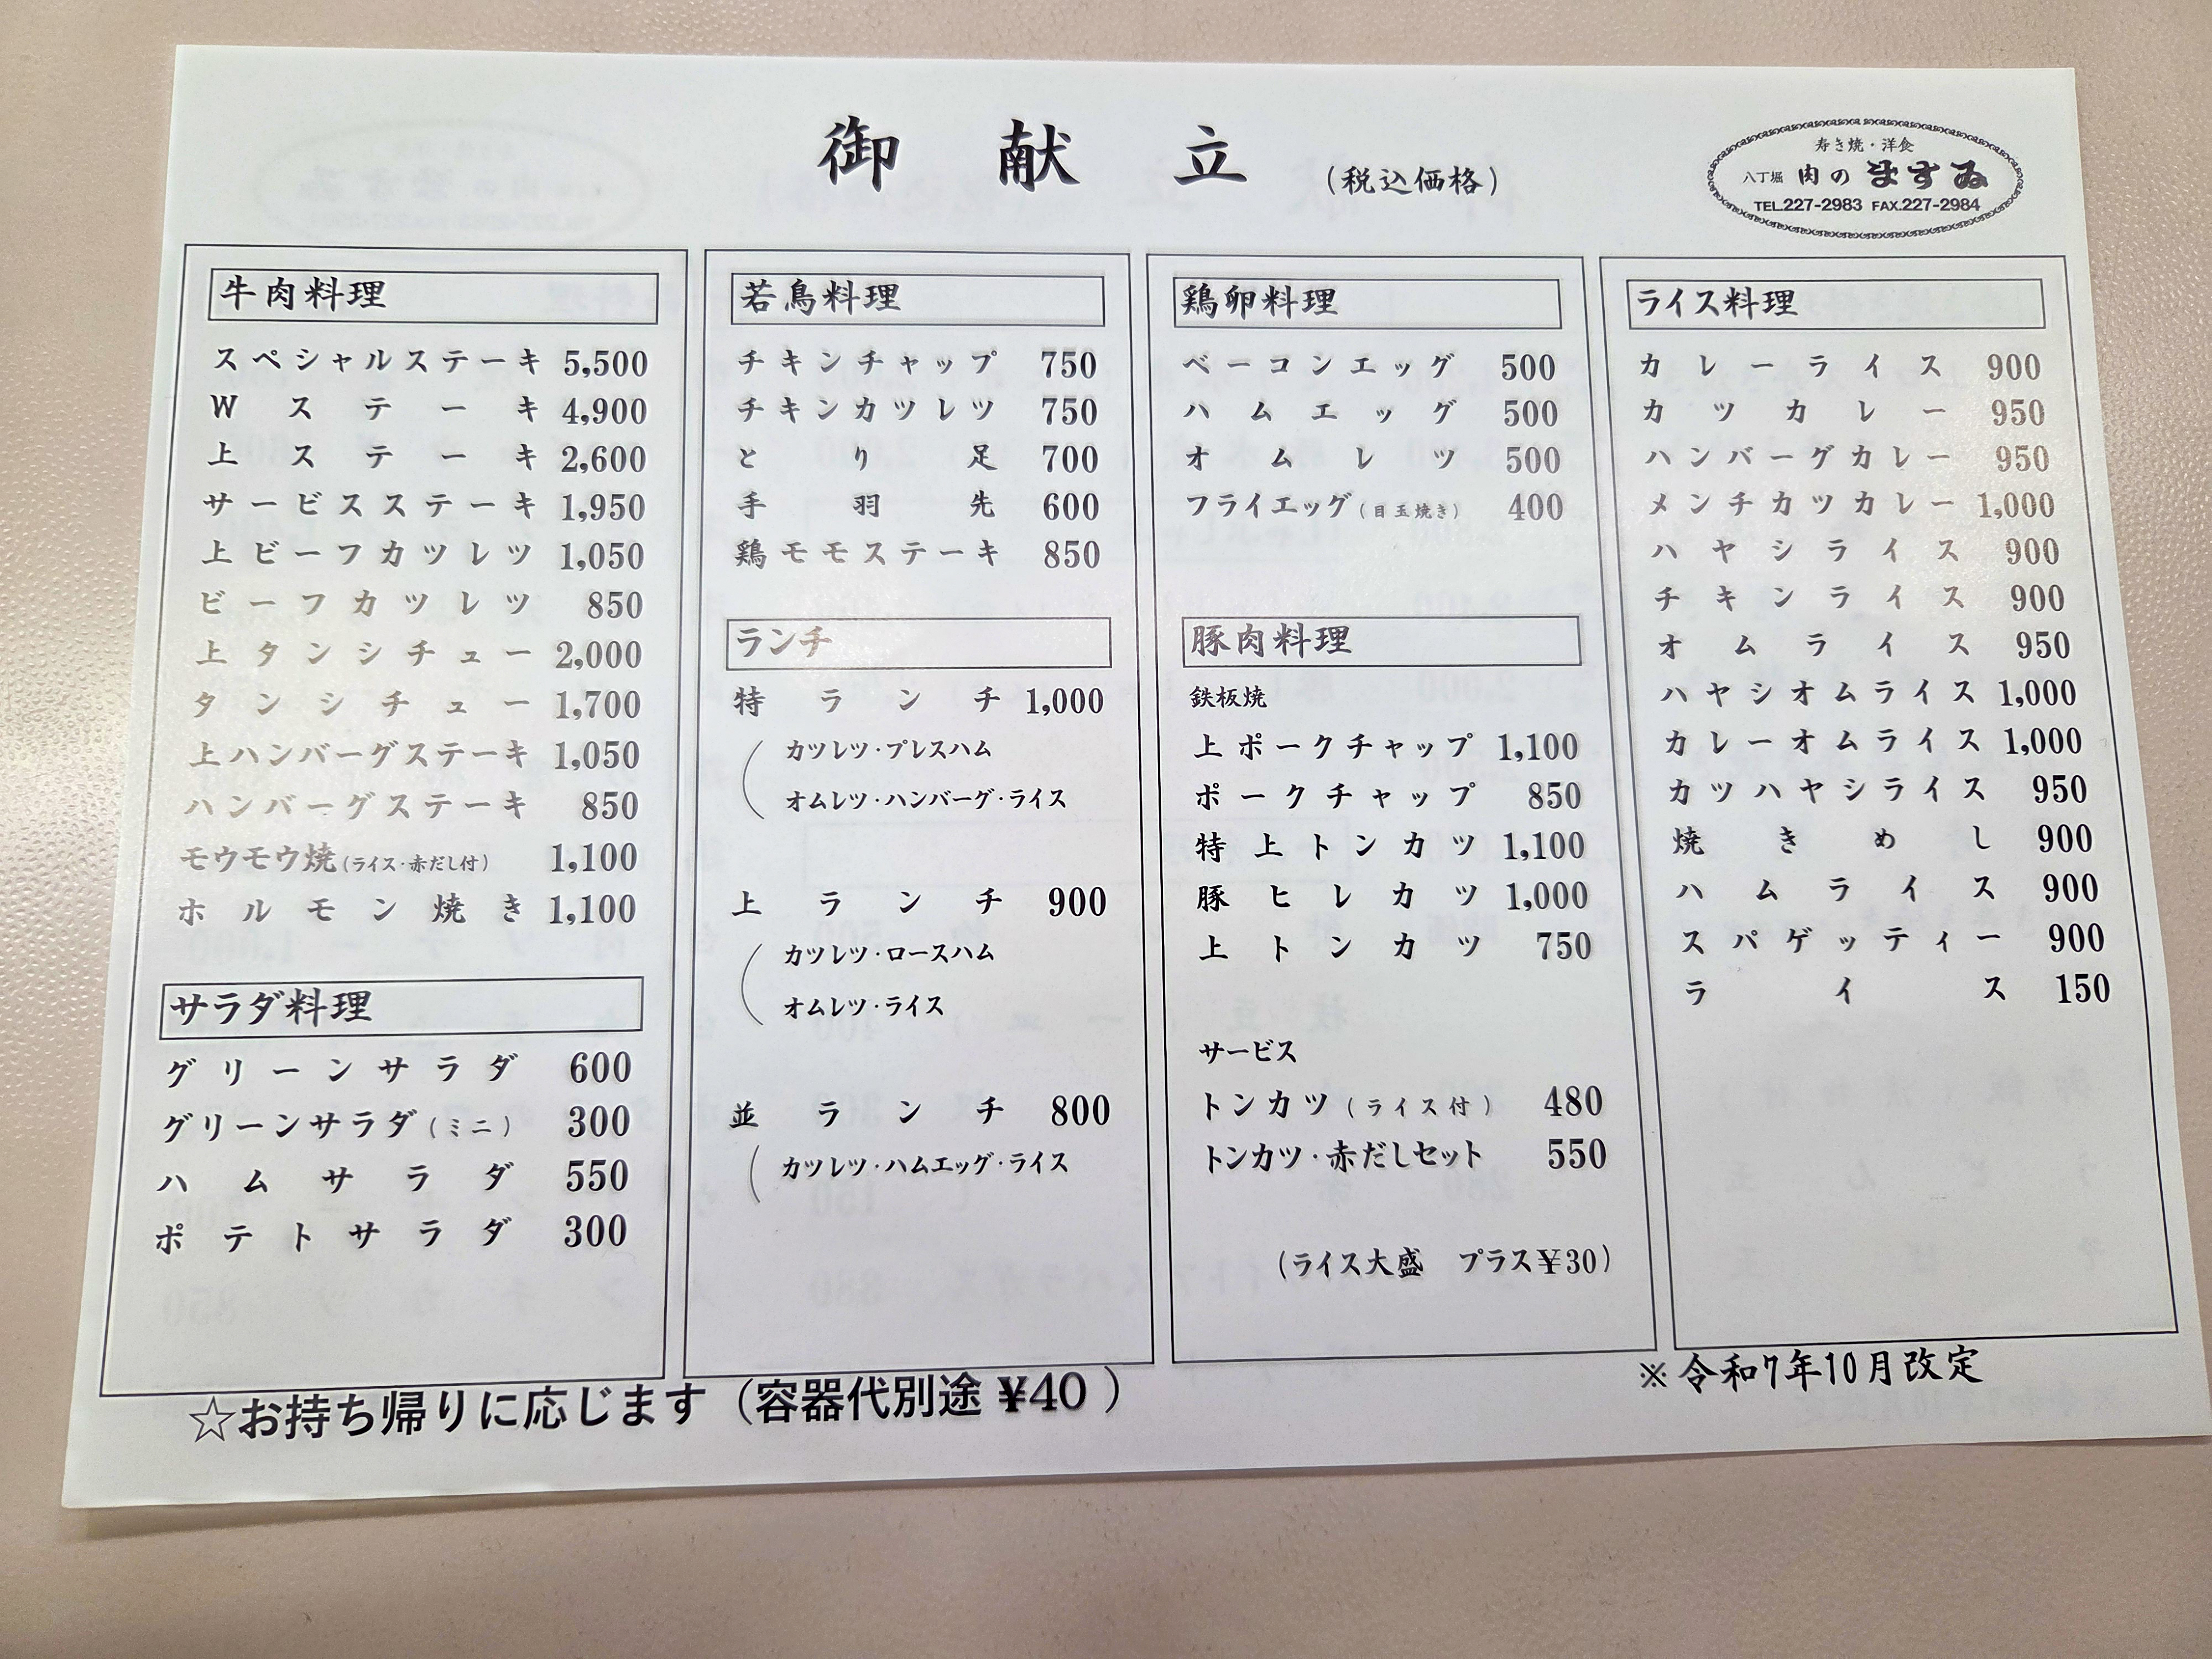 御献立 (税込価格)
寿き焼・洋食
八丁堀 肉のますゐ
TEL.227-2983 FAX.227-2984
牛肉料理
スペシャルステーキ 5,500
Wステーキ 4,900
上ステーキ 2,600
サービスステーキ 1,950
上ビーフカツレツ 1,050
ビーフカツレツ 850
上タンシチュー 2,000
タンシチュー 1,700
上ハンバーグステーキ 1,050
ハンバーグステーキ 850
モウモウ焼(ライス・赤だし付) 1,100
ホルモン焼き 1,100
サラダ料理
グリーンサラダ 600
グリーンサラダ(ミニ) 300
ハムサラダ 550
ポテトサラダ 300
若鳥料理
チキンチャップ 750
チキンカツレツ 750
とり足 700
手羽先 600
鶏モモステーキ 850
ランチ
特ランチ 1,000
カツレツ・プレスハム
オムレツ・ハンバーグ・ライス
上ランチ 900
カツレツ・ロースハム
オムレツ・ライス
並ランチ 800
カツレツ・ハムエッグ・ライス
鶏卵料理
ベーコンエッグ 500
ハムエッグ 500
オムレツ 500
フライエッグ(目玉焼き) 400
豚肉料理
鉄板焼
上ポークチャップ 1,100
ポークチャップ 850
特上トンカツ 1,100
豚ヒレカツ 1,000
上トンカツ 750
サービス
トンカツ(ライス付) 480
トンカツ・赤だしセット 550
(ライス大盛 プラス¥30)
ライス料理
カレーライス 900
カツカレー 950
ハンバーグカレー 950
メンチカツカレー 1,000
ハヤシライス 900
チキンライス 900
オムライス 950
ハヤシオムライス 1,000
カレーオムライス 1,000
カツハヤシライス 950
焼きめし 900
ハムライス 900
スパゲッティー 900
ライス 150
☆お持ち帰りに応じます(容器代別途 ¥40)
※令和7年10月改定